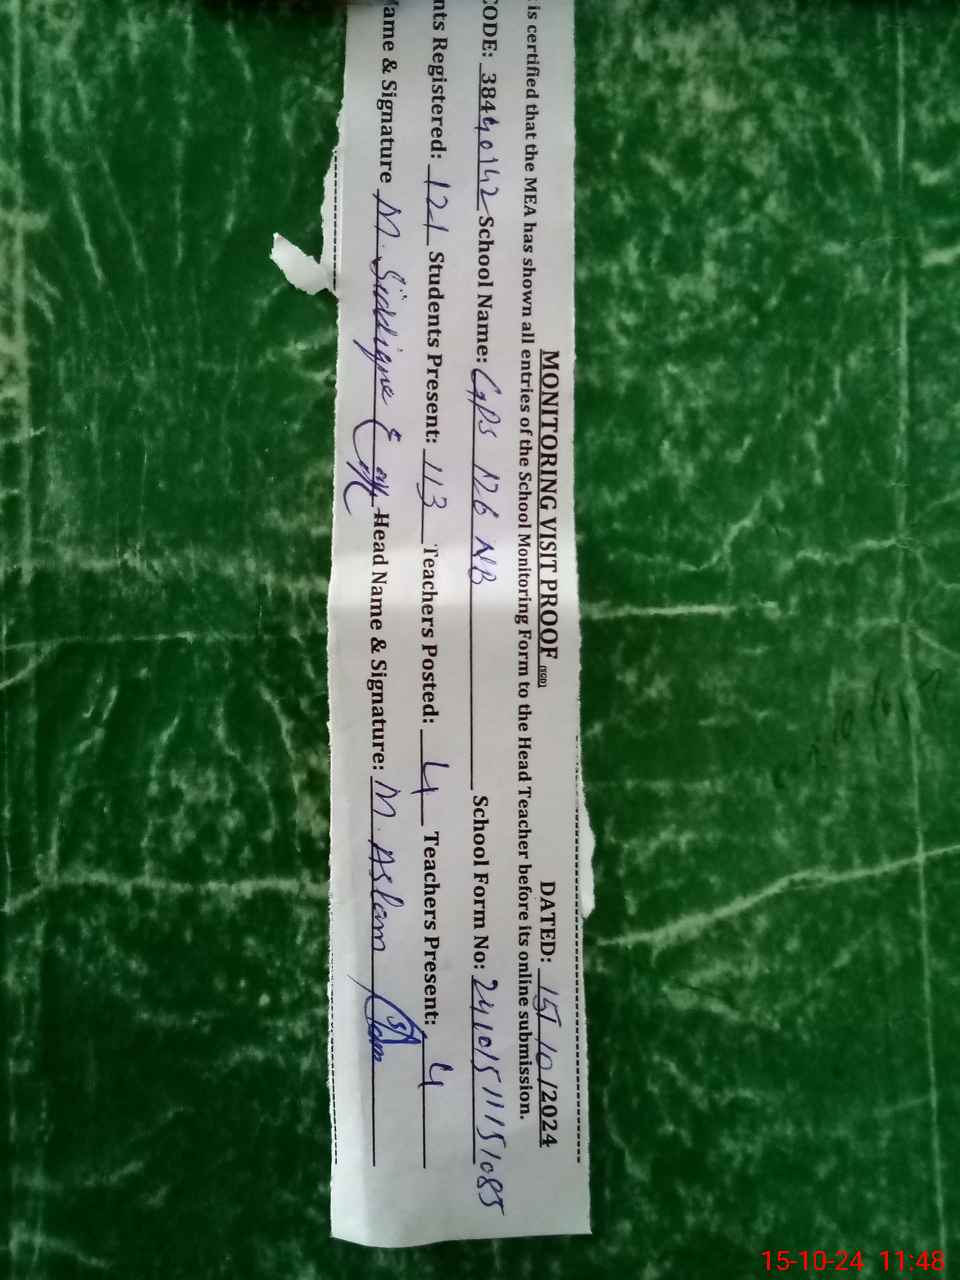 MONITORING VISIT PROOF (SGD) DATED: 15/10/2024
is certified that the MEA has shown all entries of the School Monitoring Form to the Head Teacher before its online submission.
CODE: 38440142 School Name: GPS 126 NB School Form No: 24101511151085
nts Registered: 121 Students Present: 113 Teachers Posted: 4 Teachers Present: 4
ame & Signature M. Siddique Head Name & Signature: M. Aslam
15-10-24 11:48